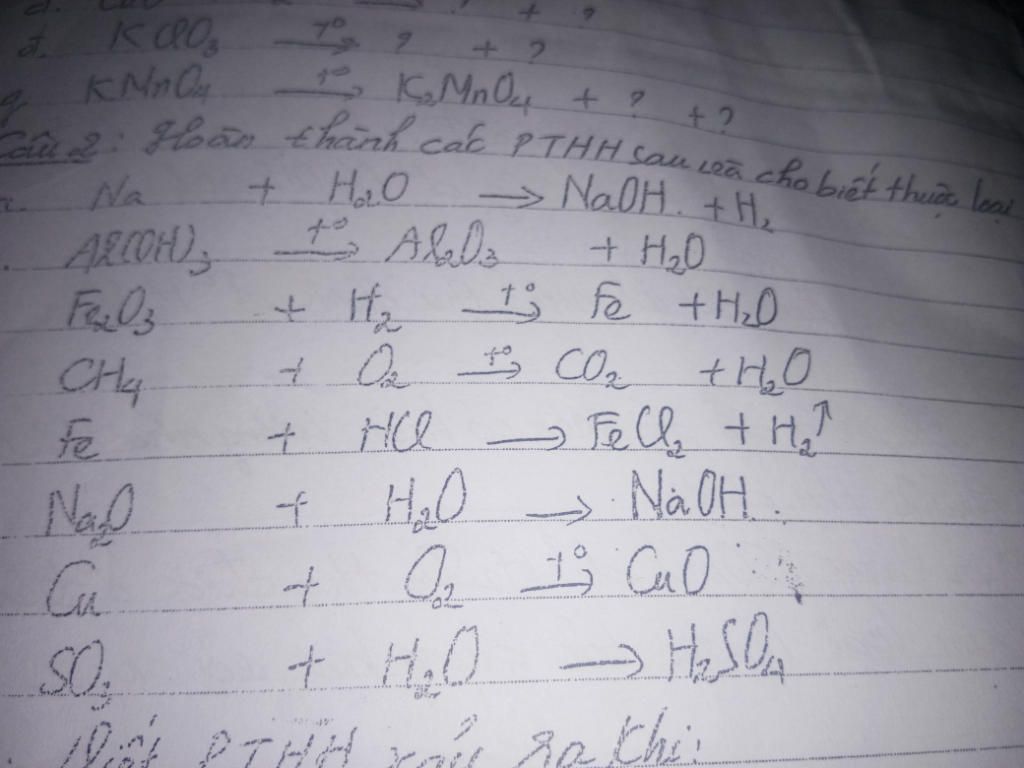 + ?
d. KClO₃ —t°→ ? + ?
g. KMnO₄ —t°→ K₂MnO₄ + ? + ?
Câu 2: Hoàn thành các PTHH sau và cho biết thuộc loại
Na + H₂O → NaOH + H₂
Al(OH)₃ —t°→ Al₂O₃ + H₂O
Fe₂O₃ + H₂ —t°→ Fe + H₂O
CH₄ + O₂ —t°→ CO₂ + H₂O
Fe + HCl → FeCl₂ + H₂↑
Na₂O + H₂O → NaOH
Cu + O₂ —t°→ CuO
SO₃ + H₂O → H₂SO₄
Viết PTHH xảy ra khi: